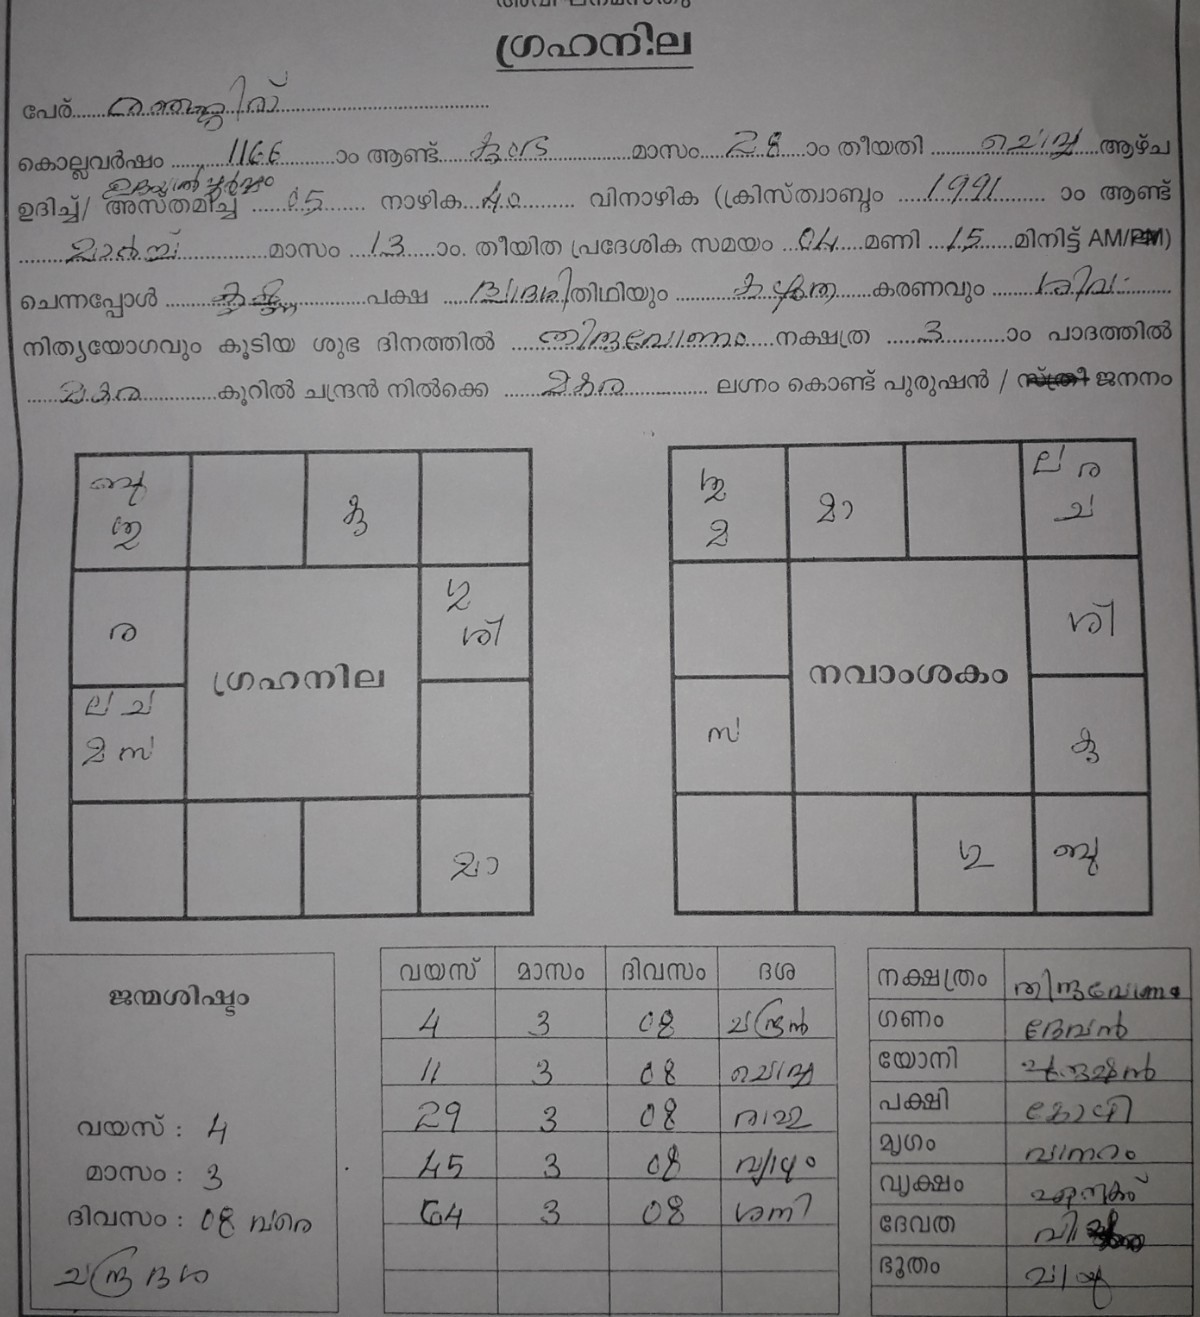 ഗ്രഹനില
പേര്
കൊല്ലവർഷം 1166 ാം ആണ്ട് കുംഭ മാസം 28 ാം തീയതി ചൊവ്വ ആഴ്ച
ഉദയാൽപൂർവ്വം
ഉദിച്ച്/ അസ്തമിച്ച് 05 നാഴിക 40 വിനാഴിക (ക്രിസ്ത്വാബ്ദം 1991 ാം ആണ്ട്
മാർച്ച് മാസം 13 ാം. തീയിത പ്രദേശിക സമയം 04 മണി 15 മിനിട്ട് AM/PM)
ചെന്നപ്പോൾ കൃഷ്ണ പക്ഷ ദ്വാദശി തിഥിയും കഴുത കരണവും ശിവ
നിത്യയോഗവും കൂടിയ ശുഭ ദിനത്തിൽ തിരുവോണം നക്ഷത്ര 3 ാം പാദത്തിൽ
മകര കൂറിൽ ചന്ദ്രൻ നിൽക്കെ മകര ലഗ്നം കൊണ്ട് പുരുഷൻ / സ്ത്രീ ജനനം
ബു
ശു
കു
ര
ഗു
ശി
ല ച
മ സ
മാ
ഗ്രഹനില
ശു
മ
മാ
ല ര
ച
ശി
സ
കു
ഗു
ബു
നവാംശകം
ജന്മശിഷ്ടം
വയസ് : 4
മാസം : 3
ദിവസം : 08 വരെ
ചന്ദ്ര ദശ
വയസ് മാസം ദിവസം ദശ
4 3 08 ചന്ദ്രൻ
11 3 08 ചൊവ്വ
29 3 08 രാഹു
45 3 08 വ്യാഴം
64 3 08 ശനി
നക്ഷത്രം തിരുവോണം
ഗണം ദേവൻ
യോനി പുരുഷൻ
പക്ഷി കോഴി
മൃഗം വാനരം
വൃക്ഷം എരുക്ക്
ദേവത
ഭൂതം വായു